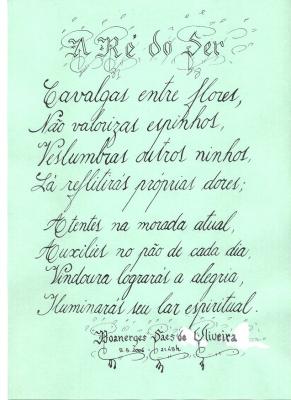 A Ré do Ser
Cavalgas entre flores,
Não valorizas espinhos,
Veslumbras outros ninhos,
Lá reflitirás próprias dores;
Atentes na morada atual,
Auxiliès no pão de cada dia,
Vindoura lograrás a alegria,
Iluminarás seu lar espiritual.
Boanerges Saes de Oliveira